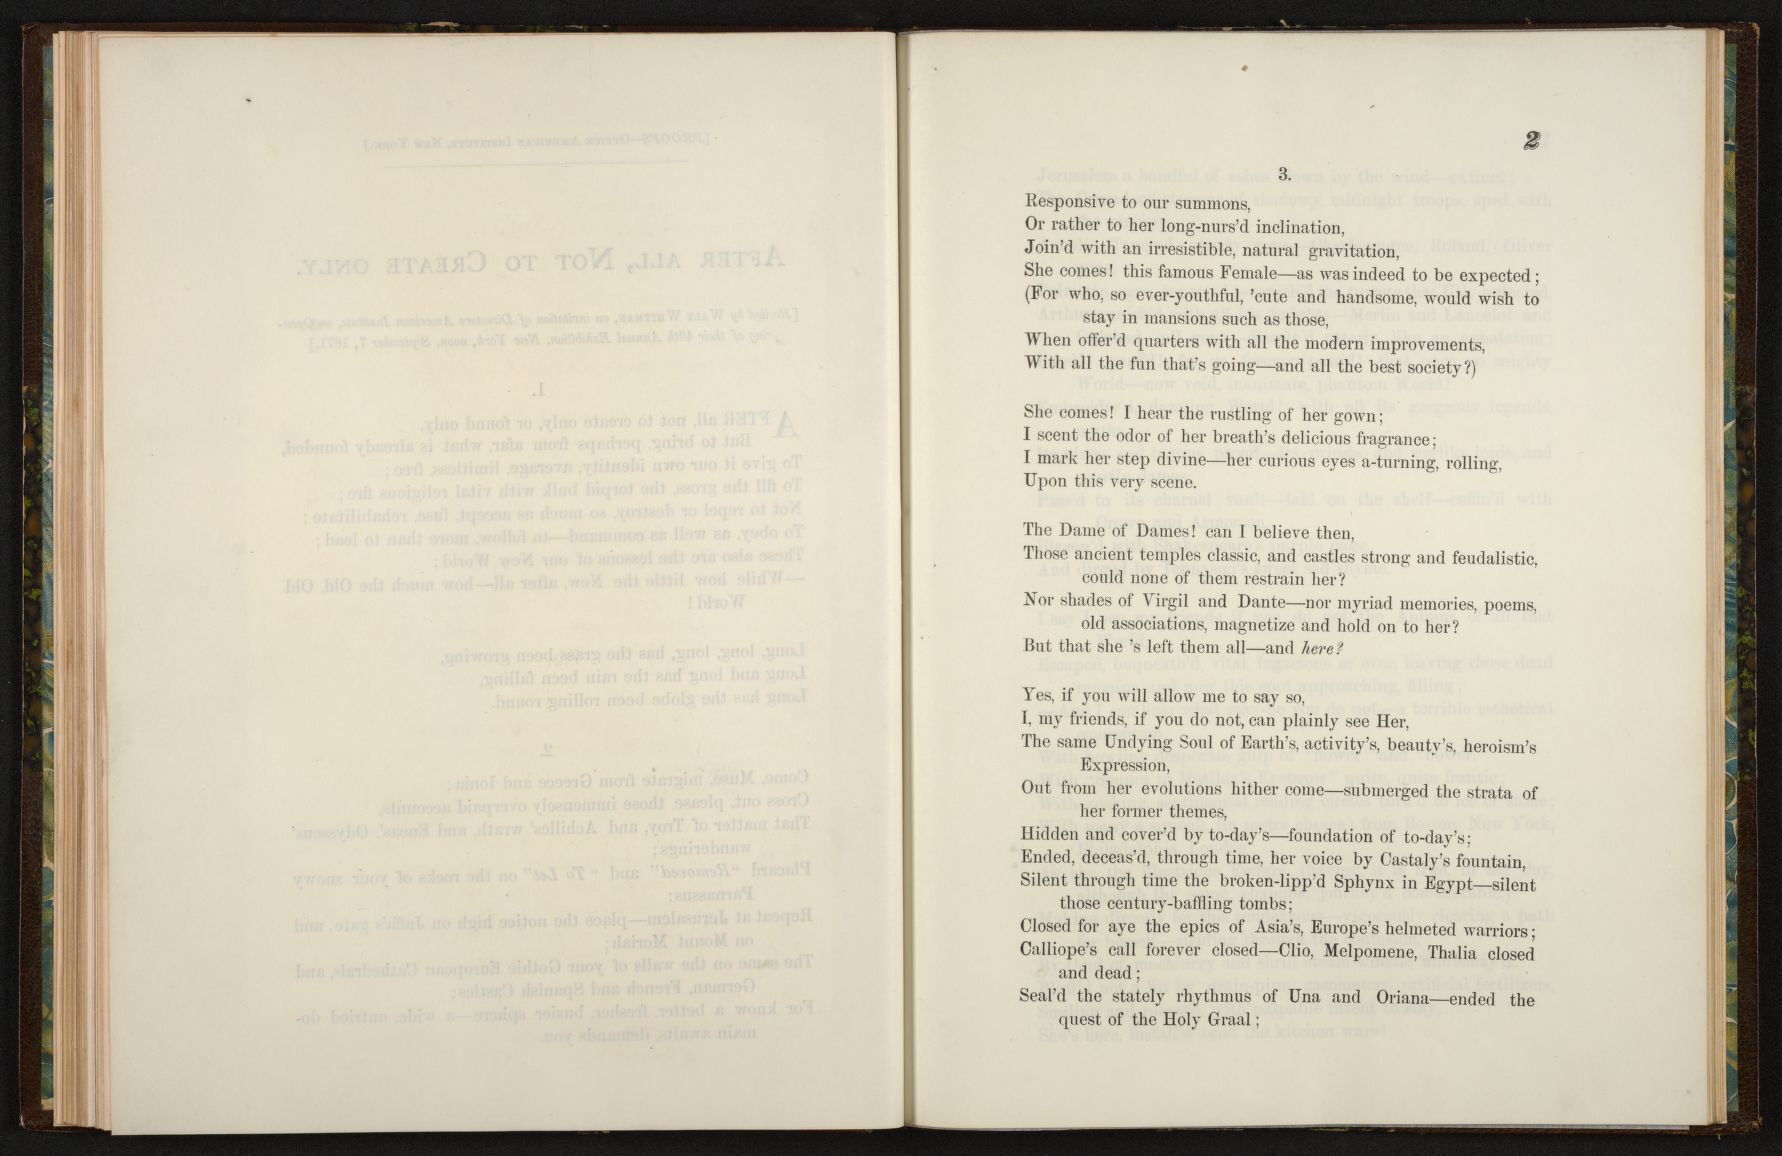 2
3.
Responsive to our summons,
Or rather to her long-nurs'd inclination,
Join'd with an irresistible, natural gravitation,
She comes! this famous Female—as was indeed to be expected;
(For who, so ever-youthful, 'cute and handsome, would wish to
stay in mansions such as those,
When offer'd quarters with all the modern improvements,
With all the fun that's going—and all the best society?)
She comes! I hear the rustling of her gown;
I scent the odor of her breath's delicious fragrance;
I mark her step divine—her curious eyes a-turning, rolling,
Upon this very scene.
The Dame of Dames! can I believe then,
Those ancient temples classic, and castles strong and feudalistic,
could none of them restrain her?
Nor shades of Virgil and Dante—nor myriad memories, poems,
old associations, magnetize and hold on to her?
But that she 's left them all—and here?
Yes, if you will allow me to say so,
I, my friends, if you do not, can plainly see Her,
The same Undying Soul of Earth's, activity's, beauty's, heroism's
Expression,
Out from her evolutions hither come—submerged the strata of
her former themes,
Hidden and cover'd by to-day's—foundation of to-day's;
Ended, deceas'd, through time, her voice by Castaly's fountain,
Silent through time the broken-lipp'd Sphynx in Egypt—silent
those century-baffling tombs;
Closed for aye the epics of Asia's, Europe's helmeted warriors;
Calliope's call forever closed—Clio, Melpomene, Thalia closed
and dead;
Seal'd the stately rhythmus of Una and Oriana—ended the
quest of the Holy Graal;